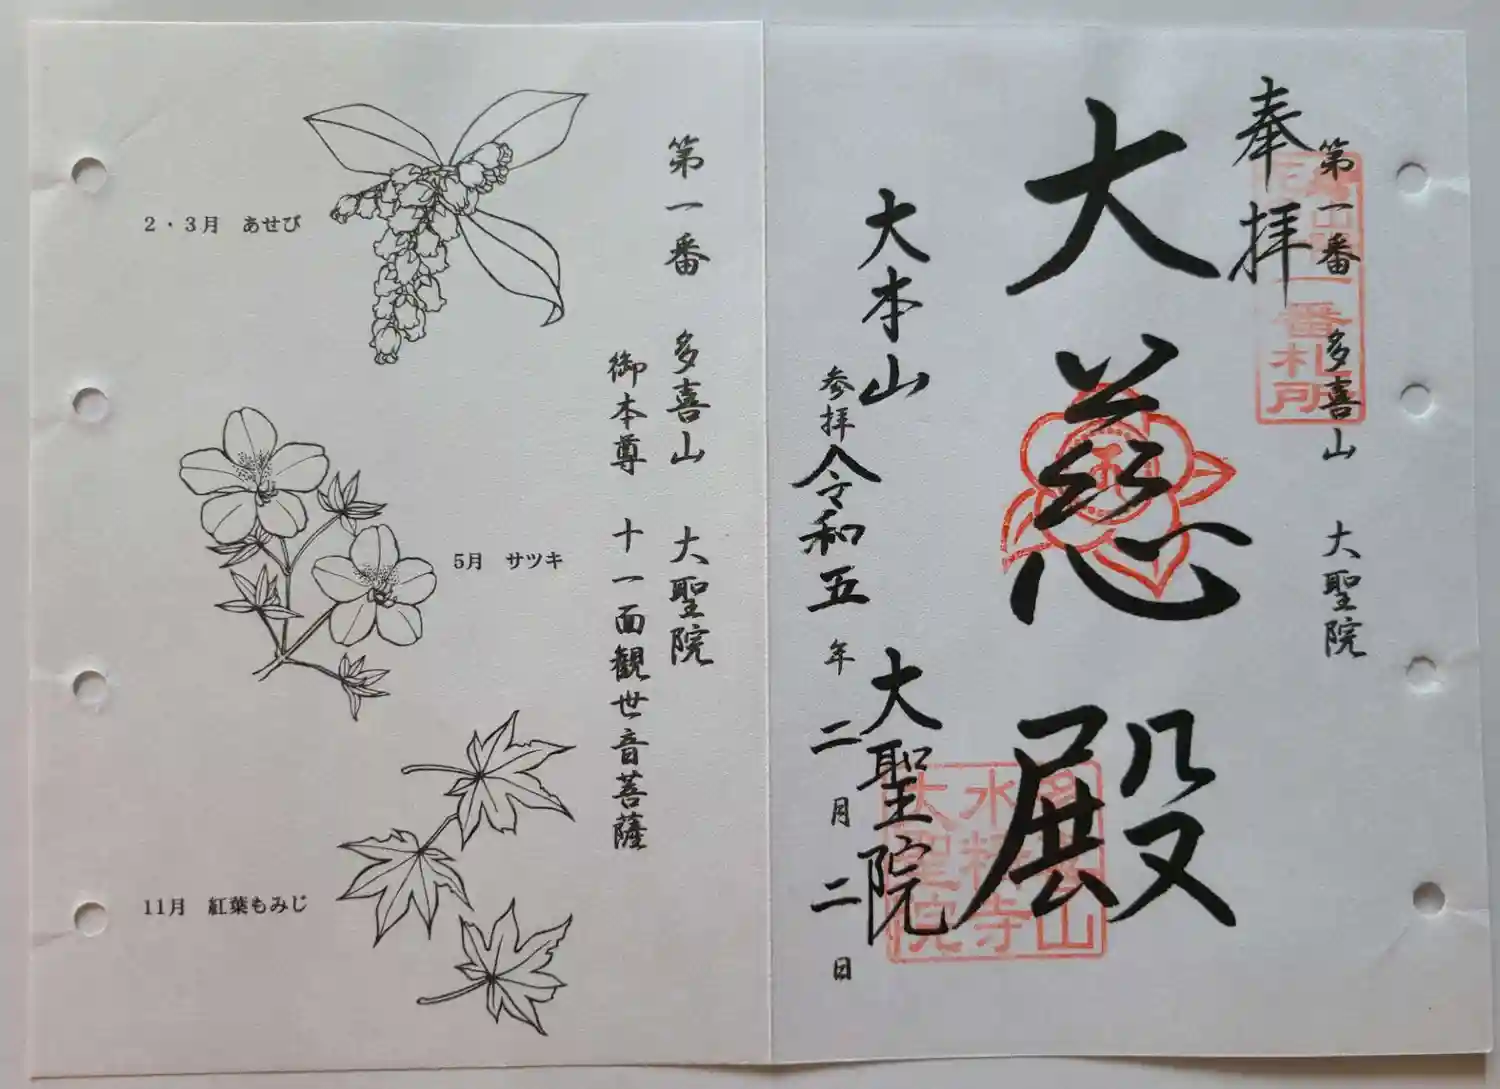 第一番 多喜山 大聖院
奉拝
一番札所
大慈殿
大本山 大聖院
参拝 令和五年二月二日
水精寺
大聖院
第一番 多喜山 大聖院
御本尊 十一面観世音菩薩
2・3月 あせび
5月 サツキ
11月 紅葉もみじ